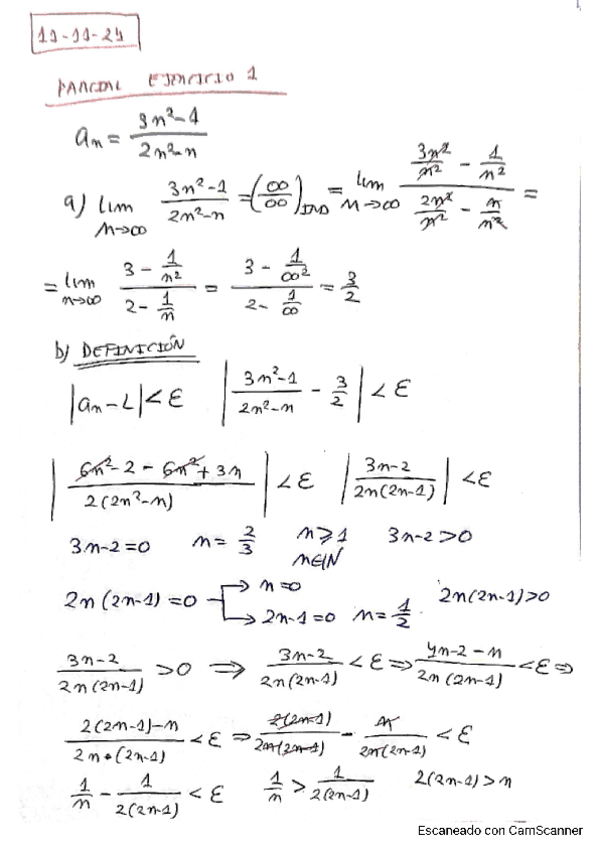 11-11-24
PARCIAL EJERCICIO 1
an = (3n²-1)/(2n²-n)
a) lim n→∞ (3n²-1)/(2n²-n) = (∞/∞)IND = lim n→∞ (3n²/n² - 1/n²)/(2n²/n² - n/n²) =
= lim n→∞ (3 - 1/n²)/(2 - 1/n) = (3 - 1/∞²)/(2 - 1/∞) = 3/2
b) DEFINICIÓN
|an - L| < ε |(3n²-1)/(2n²-n) - 3/2| < ε
|(6n² - 2 - 6n² + 3n)/(2(2n²-n))| < ε |(3n-2)/(2n(2n-1))| < ε
3n-2=0 n = 2/3 n⩾1 n∈ℕ 3n-2>0
2n(2n-1)=0 → n=0 → 2n-1=0 n=1/2. 2n(2n-1)>0
(3n-2)/(2n(2n-1)) > 0 ⇒ (3n-2)/(2n(2n-1)) < ε ⇒ (4n-2-n)/(2n(2n-1)) < ε ⇒
(2(2n-1)-n)/(2n•(2n-1)) < ε ⇒ 2(2n-1)/(2n(2n-1)) - n/(2n(2n-1)) < ε
1/n - 1/(2(2n-1)) < ε 1/n > 1/(2(2n-1)) 2(2n-1)>n
Escaneado con CamScanner